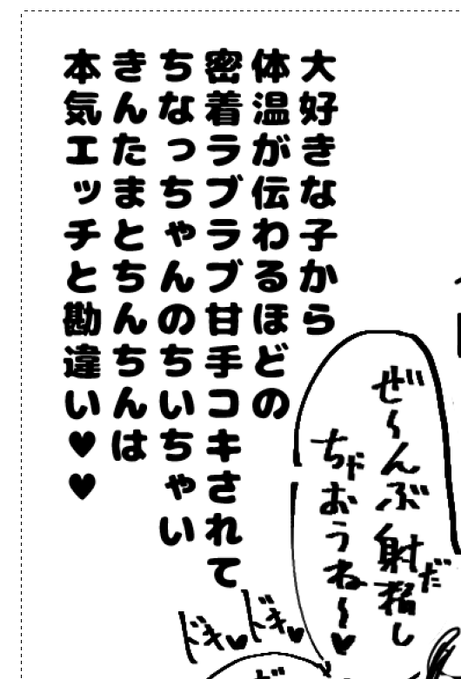 大好きな子から
体温が伝わるほどの
密着ラブラブ甘手コキされて
ちなっちゃんのちいちゃい
きんたまとちんちんは
本気エッチと勘違い♥♥
ぜ〜んぶ射精しだ
ちゃおうね〜♥
ドキ♥
ドキ♥